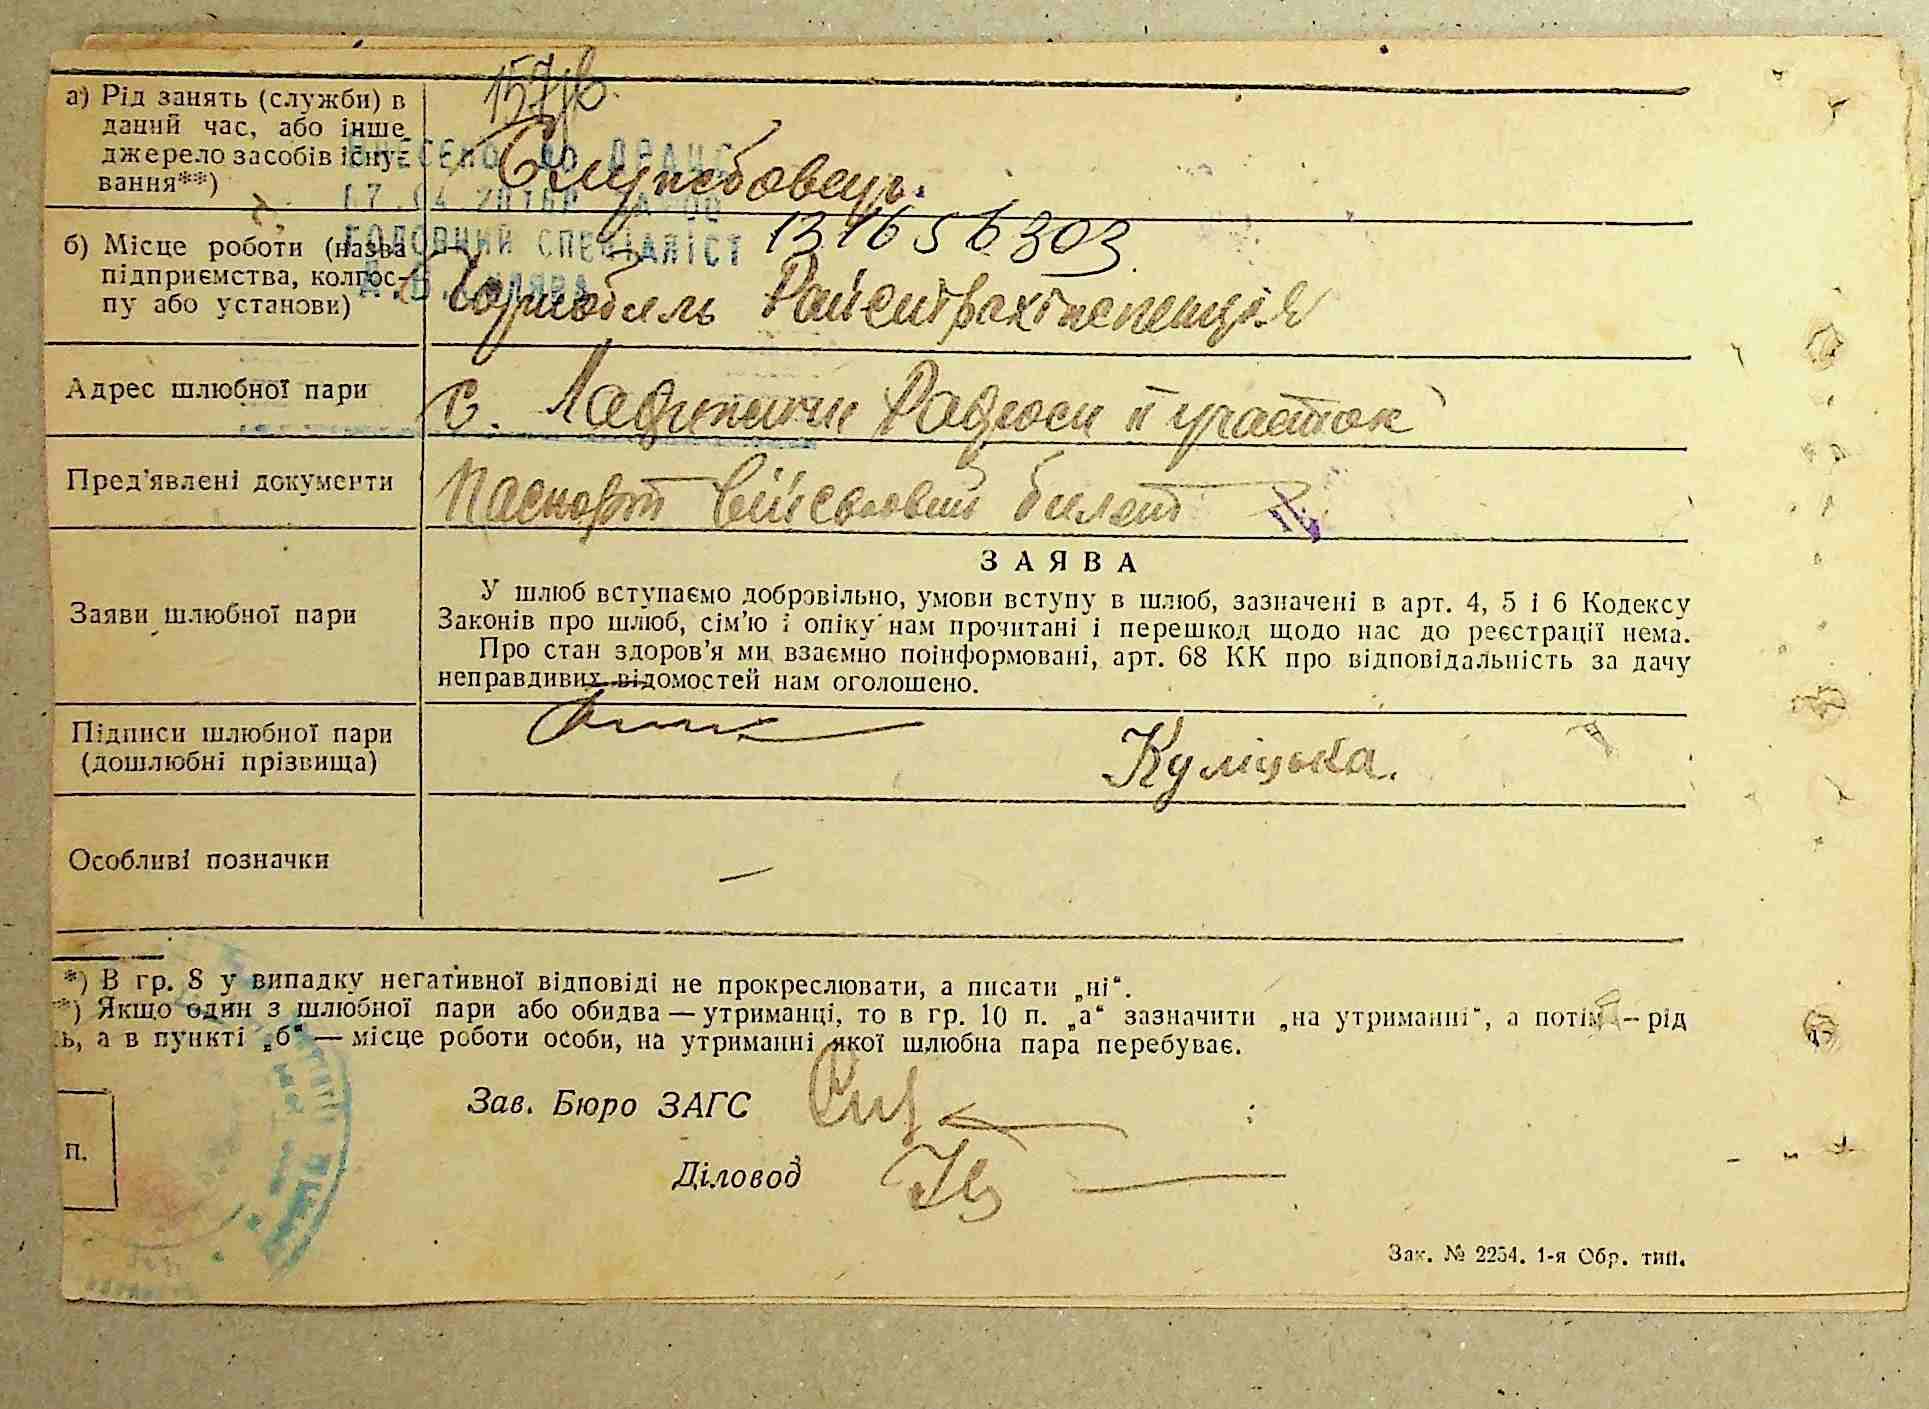 а) Рід занять (служби) в
даний час, або інше
джерело засобів існу-
вання**)
Службовець.
ВНЕСЕНО ДО ДРАЦС
ГОЛОВНИЙ СПЕЦІАЛІСТ
б) Місце роботи (назва
підприємства, колгос-
пу або установи)
Чорнобиль Райстрахінспекція
Адрес шлюбної пари
с. Ладижичі
Пред'явлені документи
Паспорт військовий билет
Заяви шлюбної пари
ЗАЯВА
У шлюб вступаємо добровільно, умови вступу в шлюб, зазначені в арт. 4, 5 і 6 Кодексу
Законів про шлюб, сім'ю і опіку нам прочитані і перешкод щодо нас до реєстрації нема.
Про стан здоров'я ми взаємно поінформовані, арт. 68 КК про відповідальність за дачу
неправдивих відомостей нам оголошено.
Підписи шлюбної пари
(дошлюбні прізвища)
Куліцька.
Особливі позначки
—
*) В гр. 8 у випадку негативної відповіді не прокреслювати, а писати „ні“.
**) Якщо один з шлюбної пари або обидва — утриманці, то в гр. 10 п. „а“ зазначити „на утриманні“, а потім — рід
ь, а в пункті „б“ — місце роботи особи, на утриманні якої шлюбна пара перебуває.
Зав. Бюро ЗАГС
п.
Діловод
Зак. № 2254. 1-я Обр. тип.